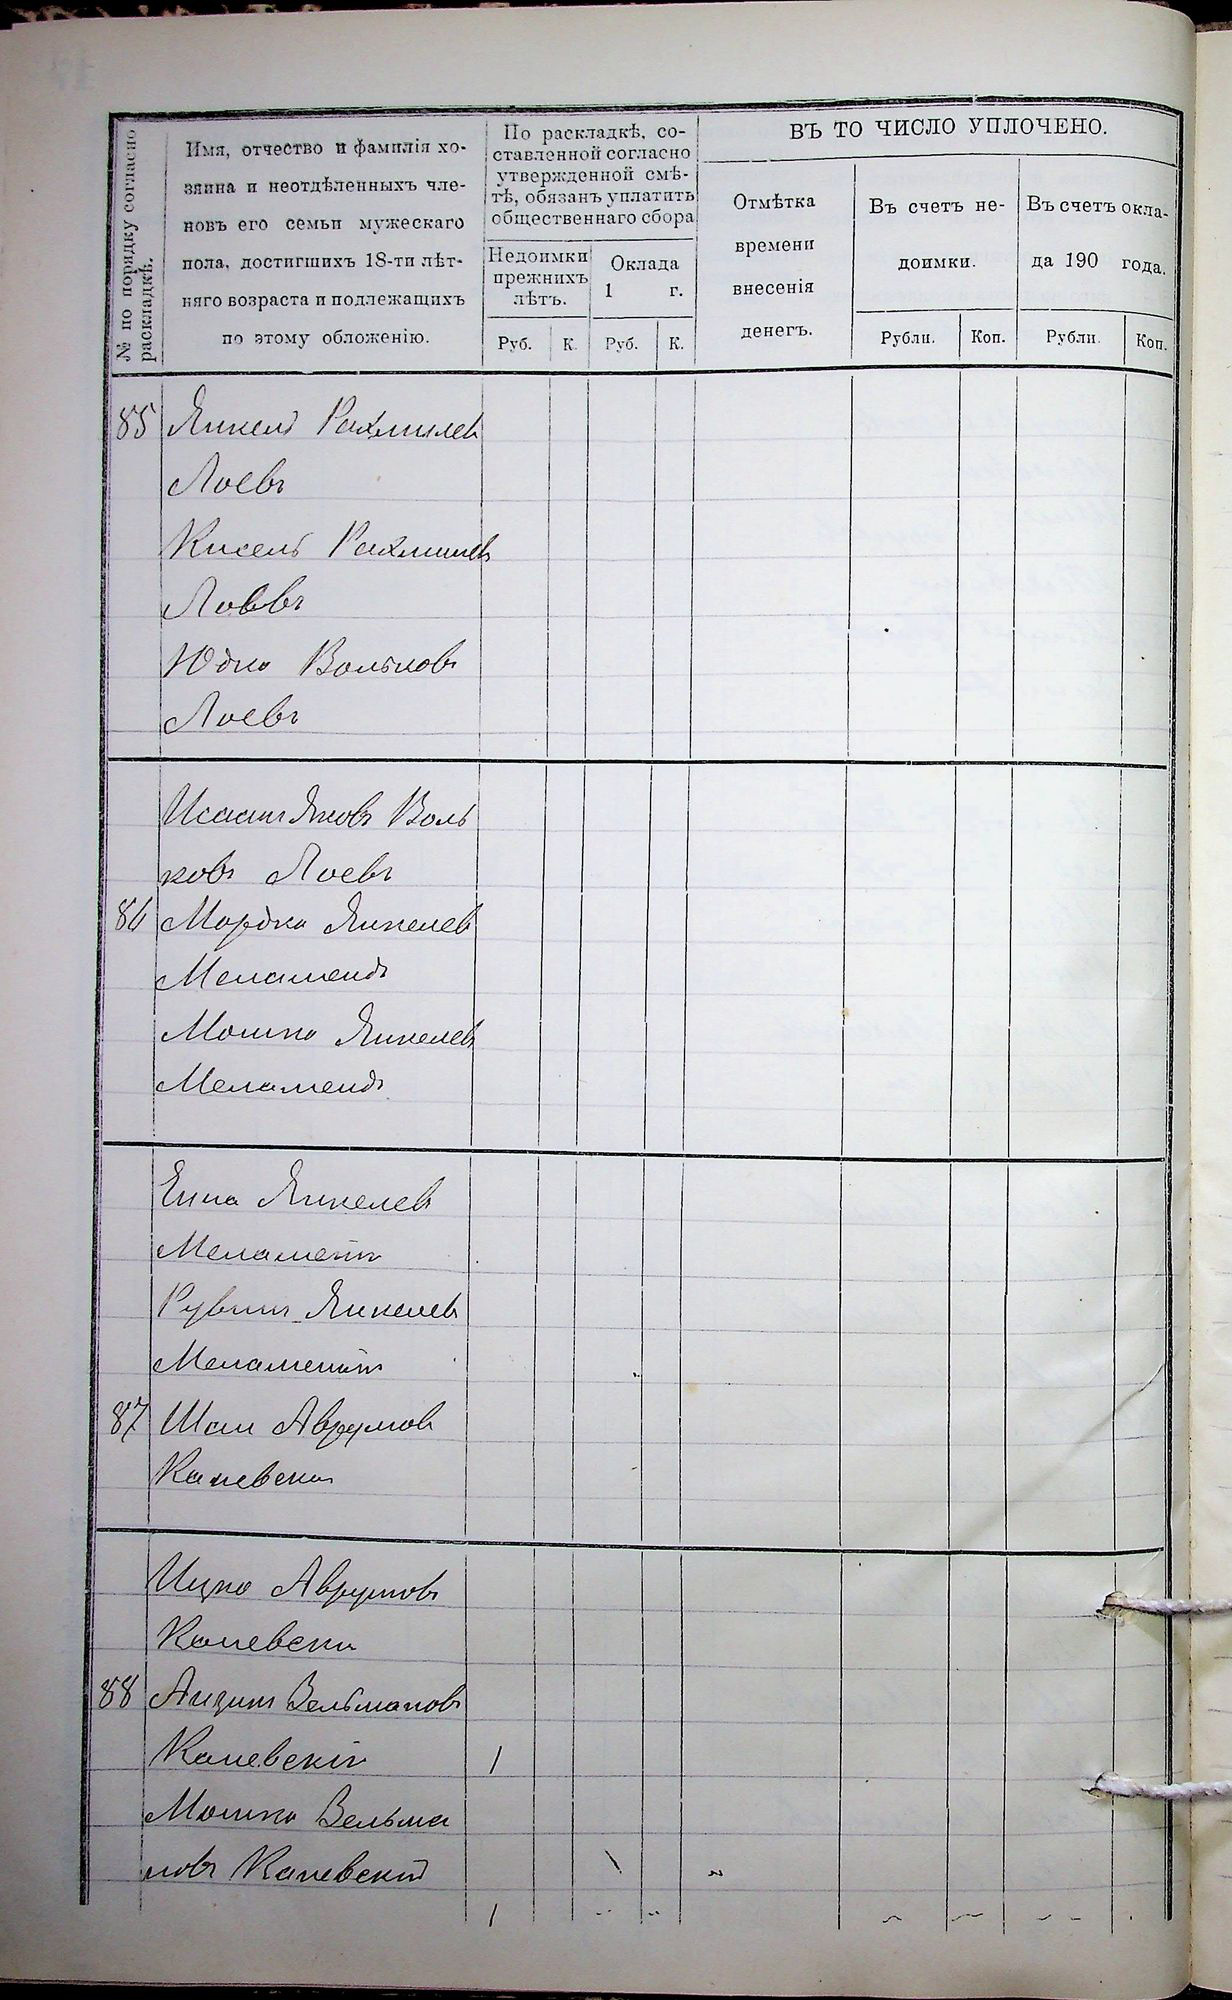 № по порядку согласно
раскладкѣ.
Имя, отчество и фамилія хо-
зяина и неотдѣленныхъ чле-
новъ его семьи мужескаго
пола, достигшихъ 18-ти лѣт-
няго возраста и подлежащихъ
по этому обложенію.
По раскладкѣ, со-
ставленной согласно
утвержденной смѣ-
тѣ, обязанъ уплатить
общественнаго сбора
Недоимки
прежнихъ
лѣтъ.
Оклада
1 г.
Руб.
К.
Руб.
К.
ВЪ ТО ЧИСЛО УПЛОЧЕНО.
Отмѣтка
времени
внесенія
денегъ.
Въ счетъ не-
доимки.
Въ счетъ окла-
да 190 года.
Рубли.
Коп.
Рубли.
Коп.
85 Янкель Рахмилев
Лоевъ
Кисель Рахмилевъ
Лоевъ
Юдко Вольковъ
Лоевъ
Исаакъ Яковъ Воль
ковъ Лоевъ
86 Мордко Янкелев
Меламендъ
Мошко Янкелевъ
Меламендъ
Янкелев
Меламентъ
Рувинъ Янкелев
Меламентъ
87 Шая Аврумов
Каневски
Ицко Аврумовъ
Каневски
88 Айзикъ Вельмановъ
Каневскій 1
Мошко Вельма
новъ Каневскій
1